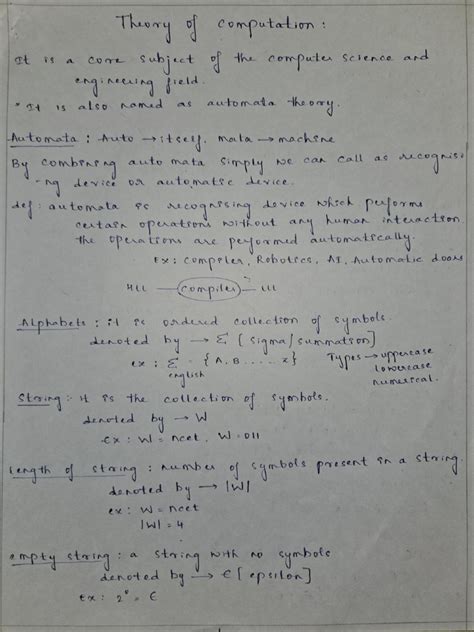 Theory of computation :
It is a core subject of the computer science and
engineering field.
* It is also named as automata theory.
Automata : Auto → itself. mata → machine
By combining auto mata simply we can call as recognisi
-ng device or automatic device.
def : automata is recognising device which performs
certain operations without any human interaction
the operations are performed automatically.
Ex : compiler, Robotics, AI, Automatic doors
HLL — compiler — LLL
Alphabets : it is ordered collection of symbols.
denoted by → Σ [sigma/summation]
ex : Σ english = {A, B ..... z} Types → uppercase
lowercase
numerical.
String : it is the collection of symbols.
denoted by → W
ex : W = ncet, W = 011
length of string : number of symbols present in a string.
denoted by → |W|
ex : W = ncet
|W| = 4
empty string : a string with no symbols
denoted by → ϵ [epsilon]
ex : 2⁰ = ϵ